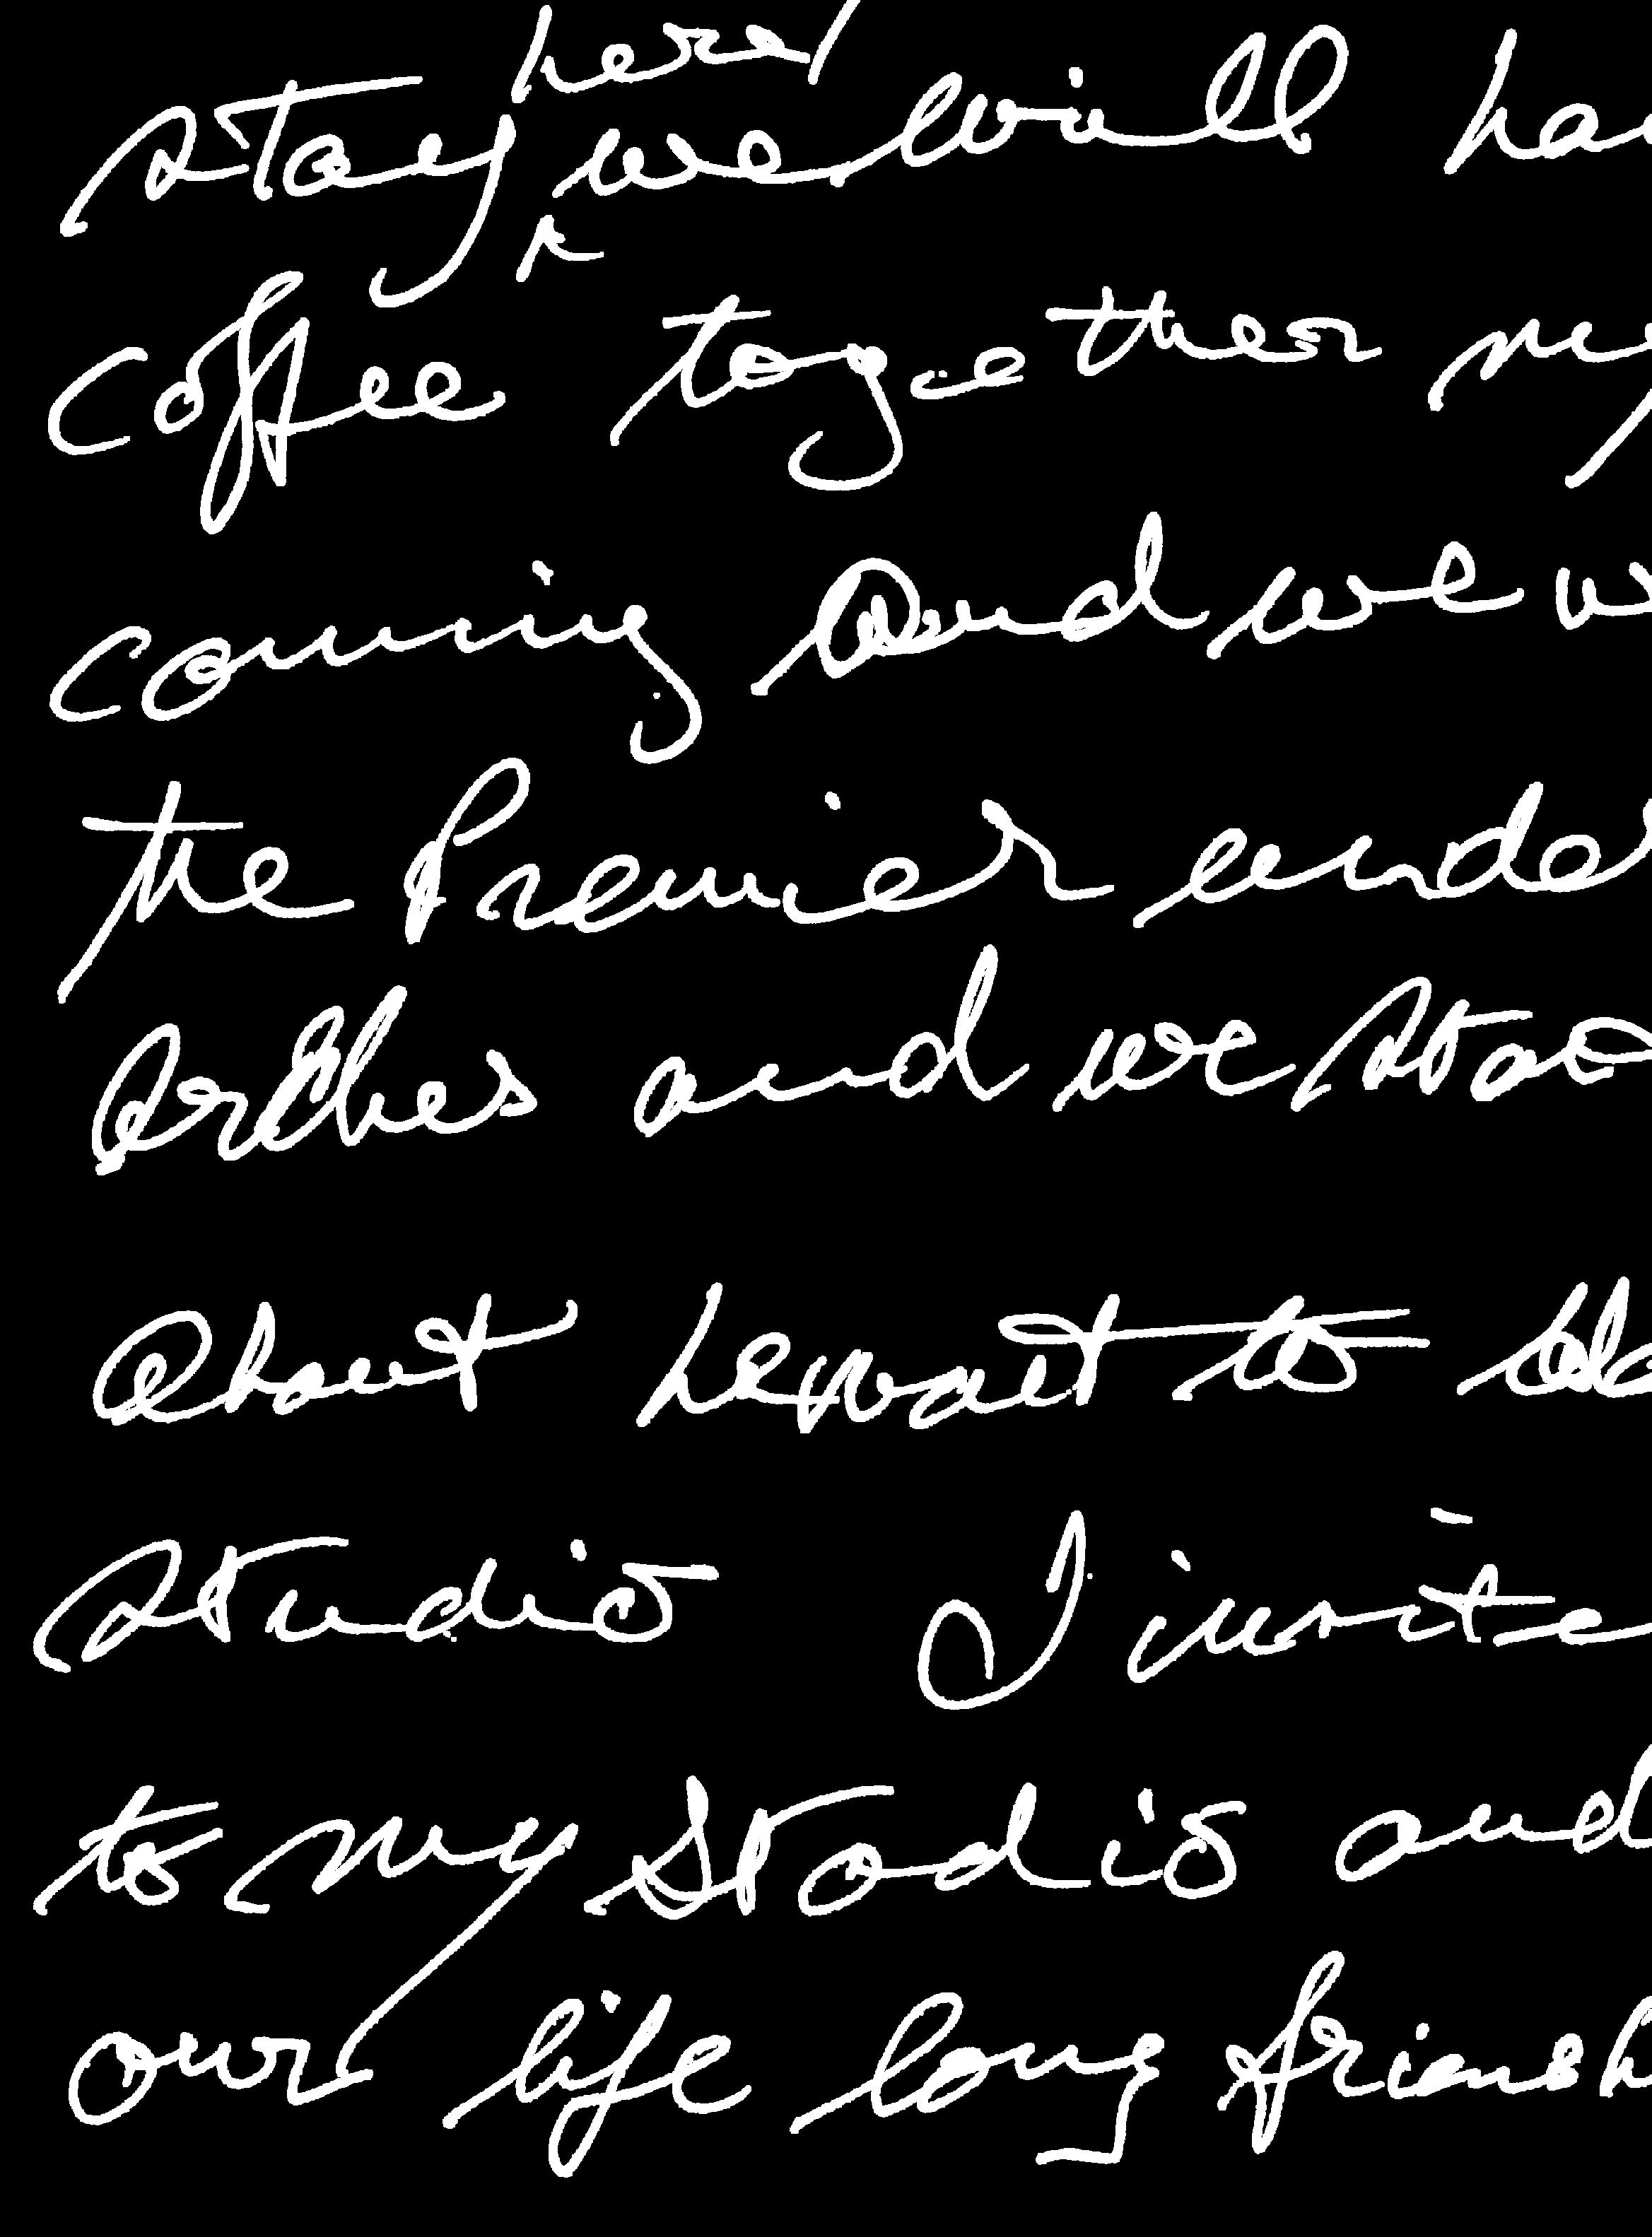 stay here we will ha
coffee together my
coming and we w
the Premier under
Arches and we sta
about he want to
studio I invite
to my Stodio and
our life long friensh